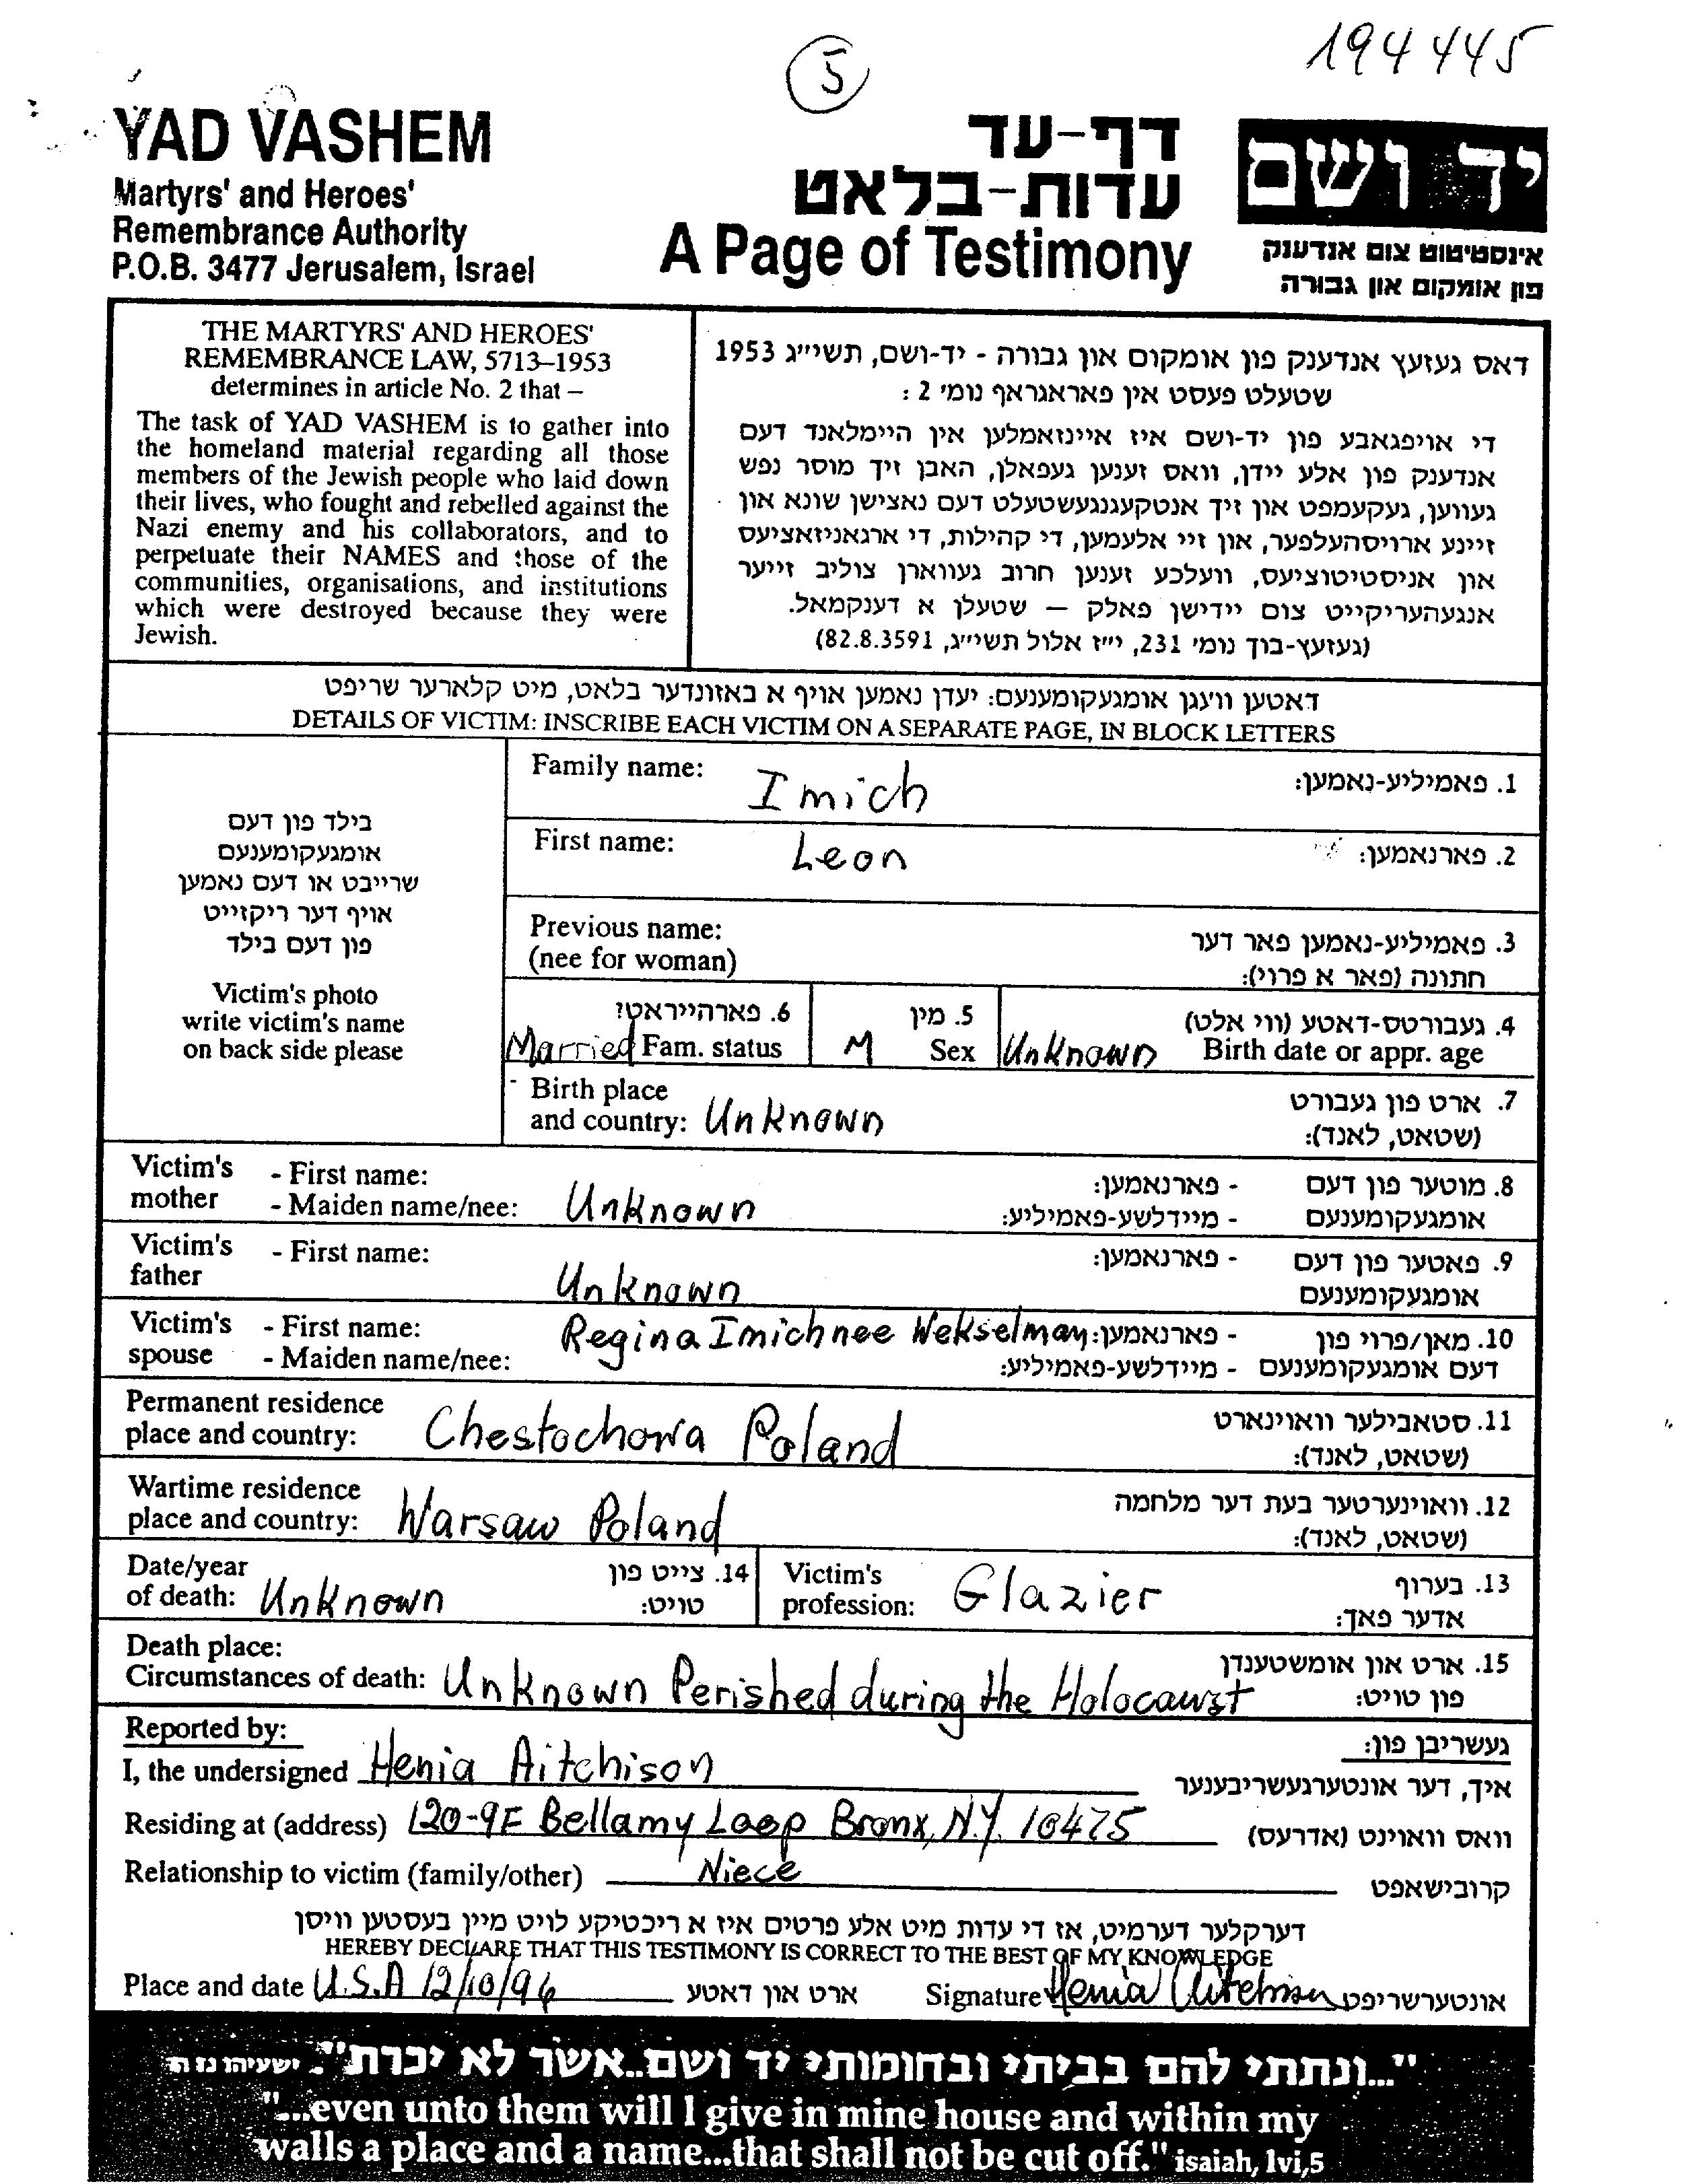 194445
5
YAD VASHEM
Martyrs' and Heroes'
Remembrance Authority
P.O.B. 3477 Jerusalem, Israel
דף-עד
עדות-בלאט
A Page of Testimony
יד ושם
אינסטיטוט צום אנדענק
פון אומקום און גבורה
THE MARTYRS' AND HEROES'
REMEMBRANCE LAW, 5713–1953
determines in article No. 2 that –
The task of YAD VASHEM is to gather into
the homeland material regarding all those
members of the Jewish people who laid down
their lives, who fought and rebelled against the
Nazi enemy and his collaborators, and to
perpetuate their NAMES and those of the
communities, organisations, and institutions
which were destroyed because they were
Jewish.
דאס געזעץ אנדענק פון אומקום און גבורה - יד-ושם, תשי״ג 1953
שטעלט פעסט אין פאראגראף נומ׳ 2 :
די אויפגאבע פון יד-ושם איז איינזאמלען אין היימלאנד דעם
אנדענק פון אלע יידן, וואס זענען געפאלן, האבן זיך מוסר נפש
געווען, געקעמפט און זיך אנטקעגנגעשטעלט דעם נאצישן שונא און
זיינע ארויסהעלפער, און זיי אלעמען, די קהילות, די ארגאניזאציעס
און אניסטיטוציעס, וועלכע זענען חרוב געווארן צוליב זייער
אנגעהעריקייט צום יידישן פאלק — שטעלן א דענקמאל.
(געזעץ-בוך נומ׳ 231, י״ז אלול תשי״ג, 82.8.3591)
דאטען וועגן אומגעקומענעם: יעדן נאמען אויף א באזונדער בלאט, מיט קלארער שריפט
DETAILS OF VICTIM: INSCRIBE EACH VICTIM ON A SEPARATE PAGE, IN BLOCK LETTERS
בילד פון דעם
אומגעקומענעם
שרייבט או דעם נאמען
אויף דער ריקזייט
פון דעם בילד
Victim's photo
write victim's name
on back side please
Family name: Imich 1. פאמיליע-נאמען:
First name: Leon 2. פארנאמען:
Previous name:
(nee for woman)
3. פאמיליע-נאמען פאר דער
חתונה (פאר א פרוי):
6. פארהייראט?
Married Fam. status
5. מין
M Sex
4. געבורטס-דאטע (ווי אלט)
Unknown Birth date or appr. age
Birth place
and country: Unknown
7. ארט פון געבורט
(שטאט, לאנד):
Victim's - First name: - פארנאמען: 8. מוטער פון דעם
mother - Maiden name/nee: Unknown - מיידלשע-פאמיליע: אומגעקומענעם
Victim's - First name: - פארנאמען: 9. פאטער פון דעם
father Unknown אומגעקומענעם
Victim's - First name: Regina Imich nee Wekselman - פארנאמען: 10. מאן/פרוי פון
spouse - Maiden name/nee: - מיידלשע-פאמיליע: דעם אומגעקומענעם
Permanent residence 11. סטאבילער וואוינארט
place and country: Chestochowa Poland (שטאט, לאנד):
Wartime residence 12. וואוינערטער בעת דער מלחמה
place and country: Warsaw Poland (שטאט, לאנד):
Date/year 14. צייט פון
of death: Unknown טויט:
Victim's 13. בערוף
profession: Glazier אדער פאך:
Death place: 15. ארט און אומשטענדן
Circumstances of death: Unknown Perished during the Holocaust פון טויט:
Reported by: געשריבן פון:
I, the undersigned Henia Aitchison איך, דער אונטערגעשריבענער
Residing at (address) 120-9F Bellamy Loop Bronx, N.Y. 10475 וואס וואוינט (אדרעס)
Relationship to victim (family/other) Niece קרובישאפט
דערקלער דערמיט, אז די עדות מיט אלע פרטים איז א ריכטיקע לויט מיין בעסטען וויסן
HEREBY DECLARE THAT THIS TESTIMONY IS CORRECT TO THE BEST OF MY KNOWLEDGE
Place and date U.S.A 12/10/96 ארט און דאטע Signature Henia Aitchison אונטערשריפט
"...ונתתי להם בביתי ובחומותי יד ושם..אשר לא יכרת". ישעיהו נו ה
"...even unto them will I give in mine house and within my
walls a place and a name...that shall not be cut off." isaiah, lvi,5